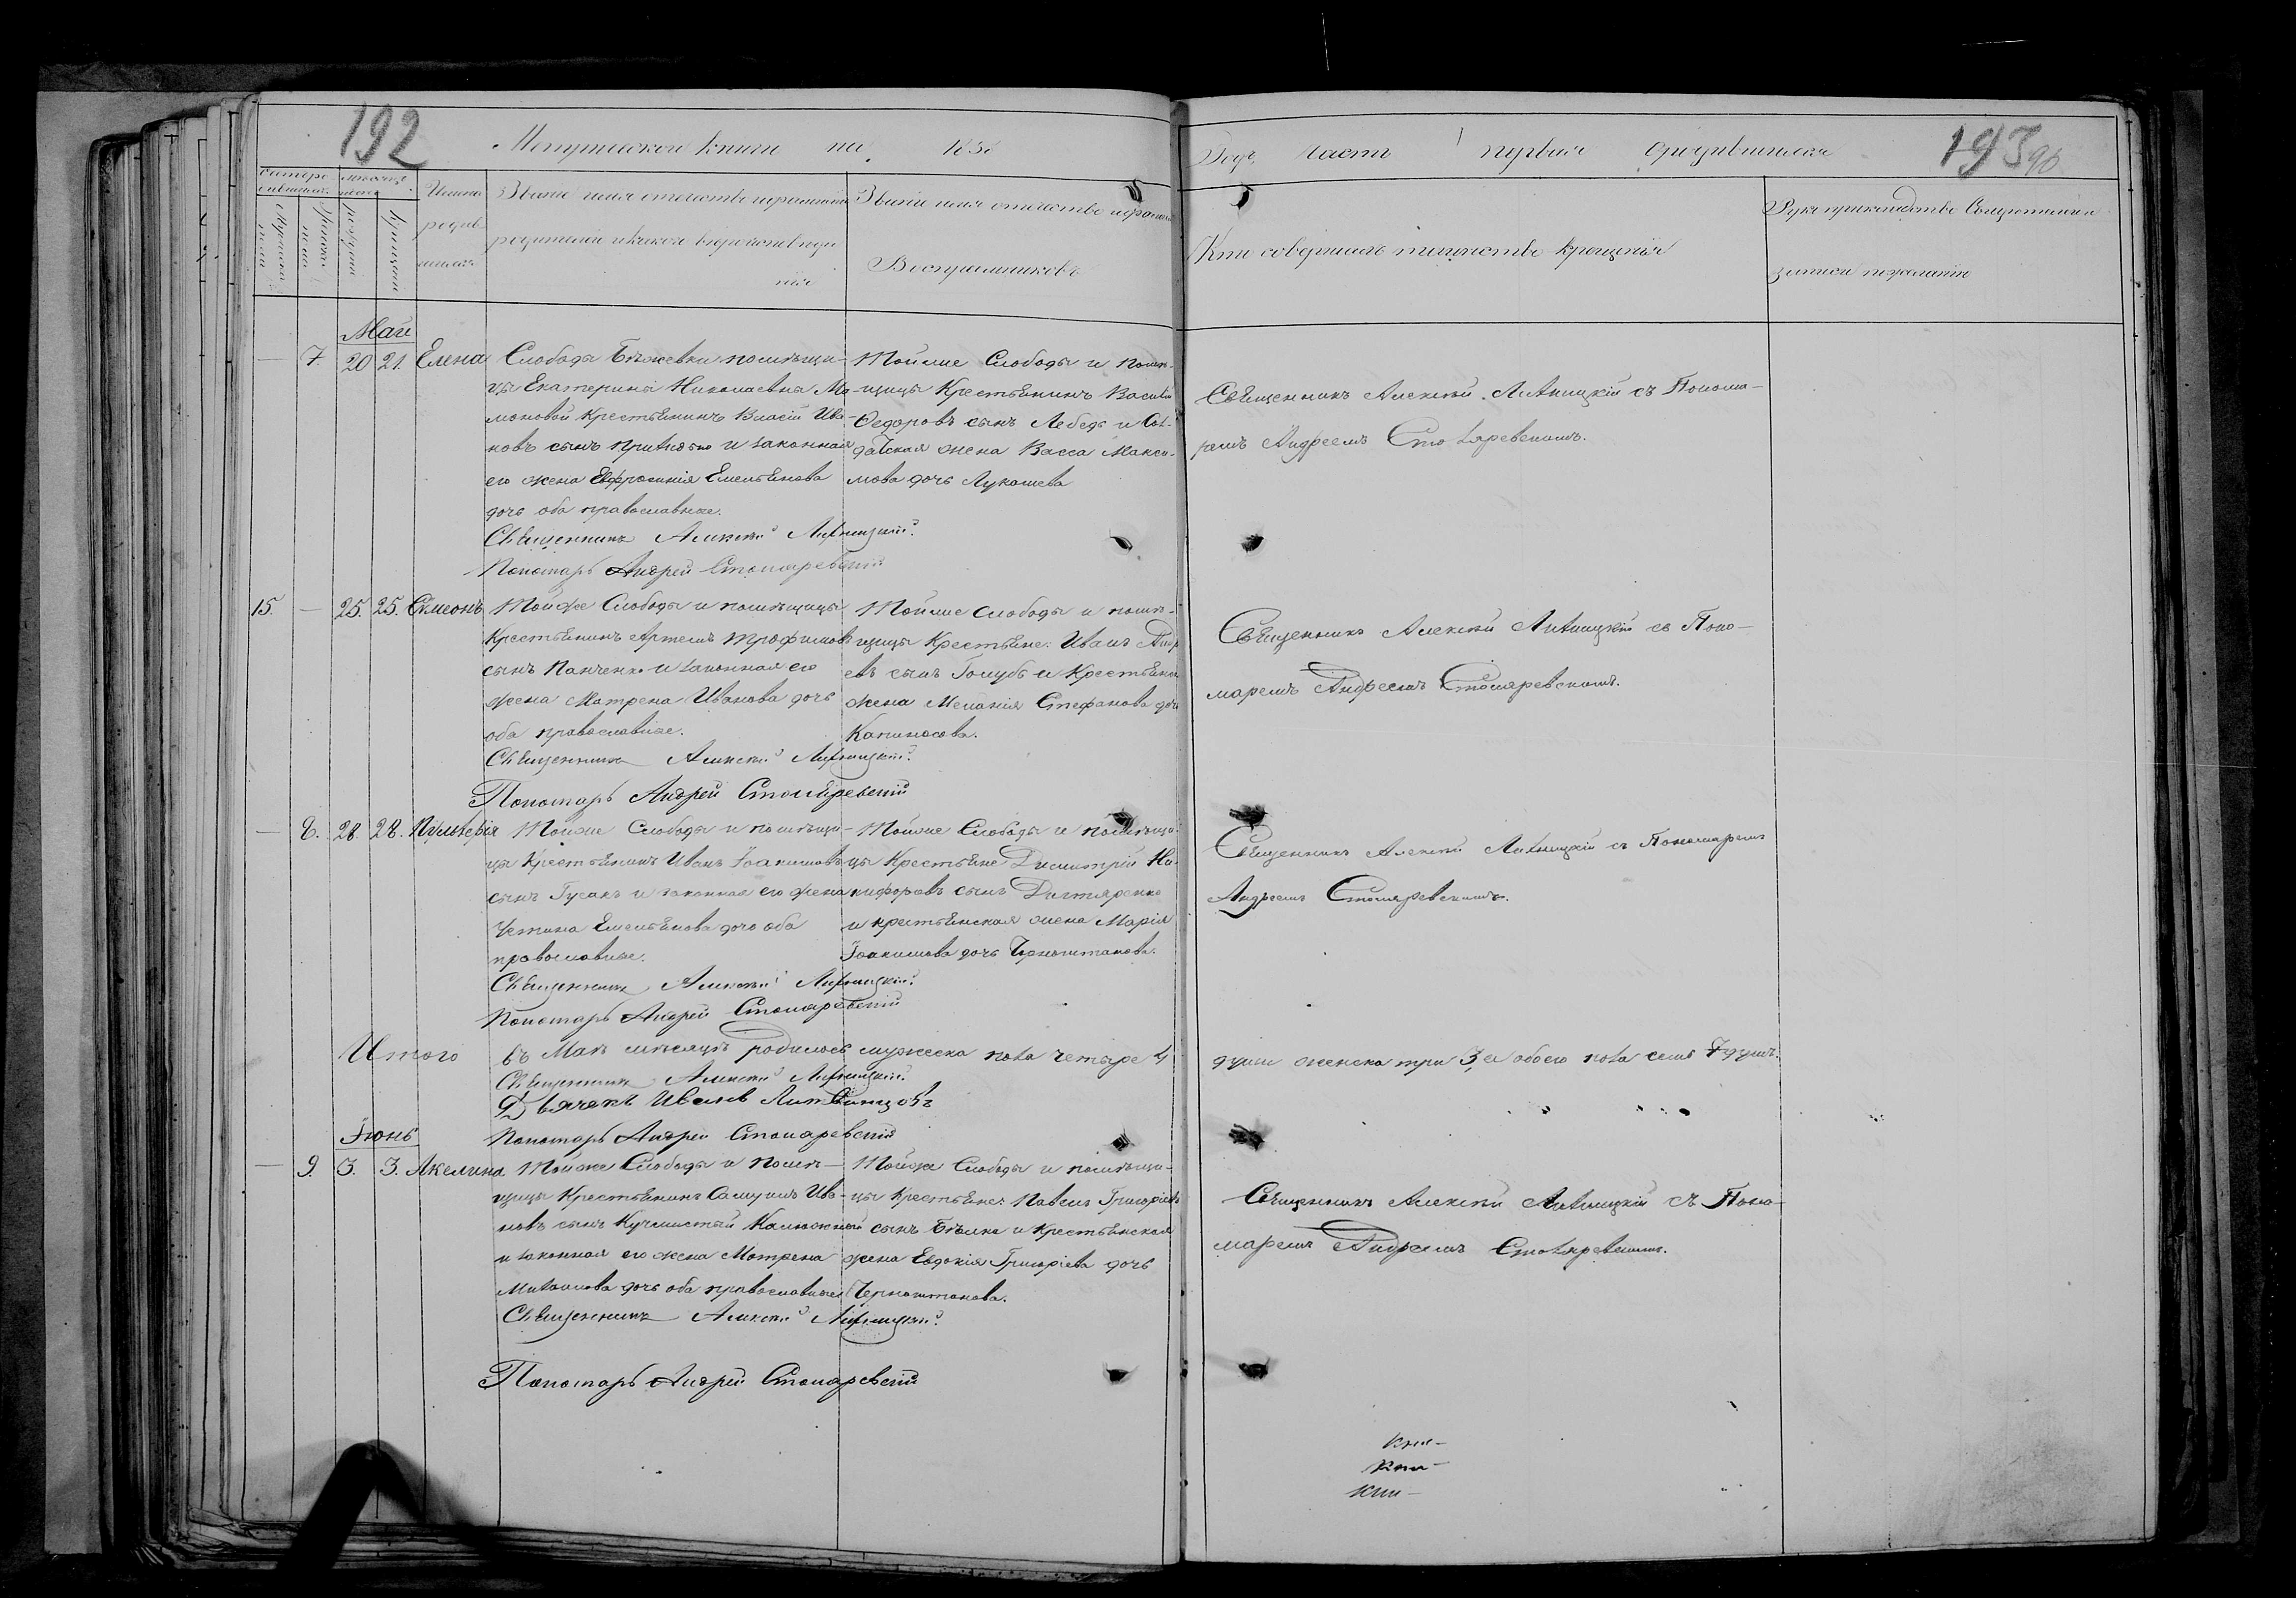 192
Метрической книги на 185
Годъ часть первая о родившихся
193 96
Имена
родив-
шихся
Званіе имя отчество и фамилія
родителей и какого вѣроисповѣда
нія
Званіе имя отчество и фамилія
Воспріемниковъ
Кто совершалъ таинство крещенія
Рукоприкладство Свидѣтелей
записи по желанію
Май
7. 20 21. Елена
Слободы Бѣжевки помѣщи-
цы Екатерины Николаевны Ма-
моновой Крестьянинъ Власій Ива-
новъ сынъ и законная
его жена Евфросинія Емельянова
дочь оба православные.
Священникъ Алексѣй
Пономарь Андрей Столяревскій
Тойже Слободы и помѣ-
щицы Крестьянинъ Василій
Ѳедоровъ сынъ Лебедь и Сол-
датская жена Васса Макси-
мова дочь Лукашева
Священникъ Алексѣй съ Понома-
ремъ Андреемъ Столяревскимъ.
15. — 25. 25. Симеонъ
Тойже Слободы и помѣщицы
Крестьянинъ Артемъ Трофимовъ
сынъ Панченко и законная его
жена Матрена Иванова дочь
оба православные.
Священникъ Алексѣй
Пономарь Андрей Столяревскій
Тойже слободы и помѣ-
щицы Крестьяне: Иванъ
евъ сынъ Голубь и Крестьянская
жена Меланія Стефанова дочь
Капиносова.
Священникъ Алексѣй съ Поно-
маремъ Андреемъ Столяревскимъ.
— 8. 28. 28. Пульхерія
Тойже Слободы и помѣщи-
цы Крестьянинъ Иванъ Іоакимовъ
сынъ Гусакъ и законная его жена
Устина Емельянова дочь оба
православные.
Священникъ Алексѣй
Пономарь Андрей Столяревскій
Тойже Слободы и помѣщи-
цы Крестьяне Димитрій Ни-
кифоровъ сынъ Дигтяренко
и крестьянская жена Марія
Іоакимова дочь Черноштанова.
Священникъ Алексѣй съ Пономаремъ
Андреемъ Столяревскимъ.
Итого въ Маѣ мѣсяцѣ родилось мужеска пола четыре 4
души женска три 3, а обоего пола семь 7 душъ.
Священникъ Алексѣй
Дьячекъ Иванъ
Пономарь Андрей Столяревскій
Іюнь
— 9. 3. 3. Акелина
Тойже Слободы и помѣ-
щицы Крестьянинъ Самуилъ Ива-
новъ сынъ Калюжный
и законная его жена Матрена
Михаилова дочь оба православные
Священникъ Алексѣй
Пономарь Андрей Столяревскій
Тойже Слободы и помѣщи-
цы Крестьяне: Павелъ Григоріевъ
сынъ Бѣлка и Крестьянская
жена Евдокія Григоріева дочь
Черноштанова.
Священникъ Алексѣй съ Поно-
маремъ Андреемъ Столяревскимъ.
Кни-
Кни-
Кни-